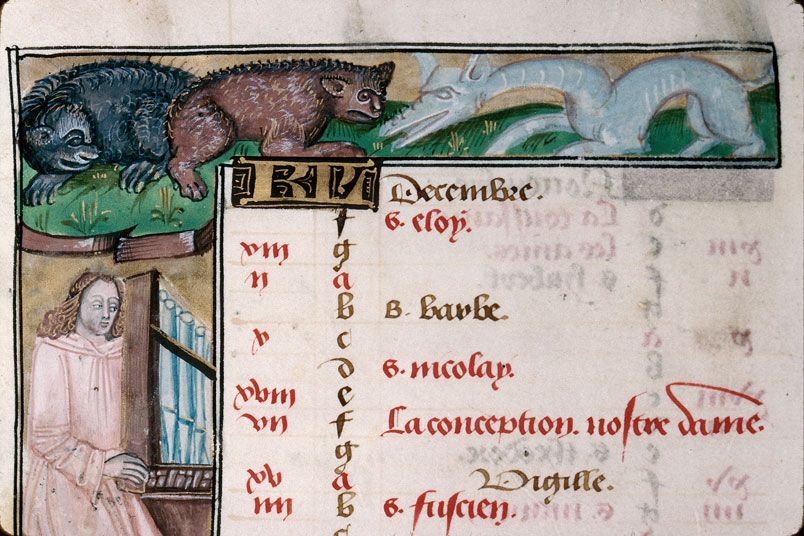 Decembre.
f s. eloy.
xiii g
ii a
b s. barbe.
x c
d s. nicolay.
xviii e
vii f La conception. nostre dame.
g
xv a Vigille.
iiii b s. fuscien.
c